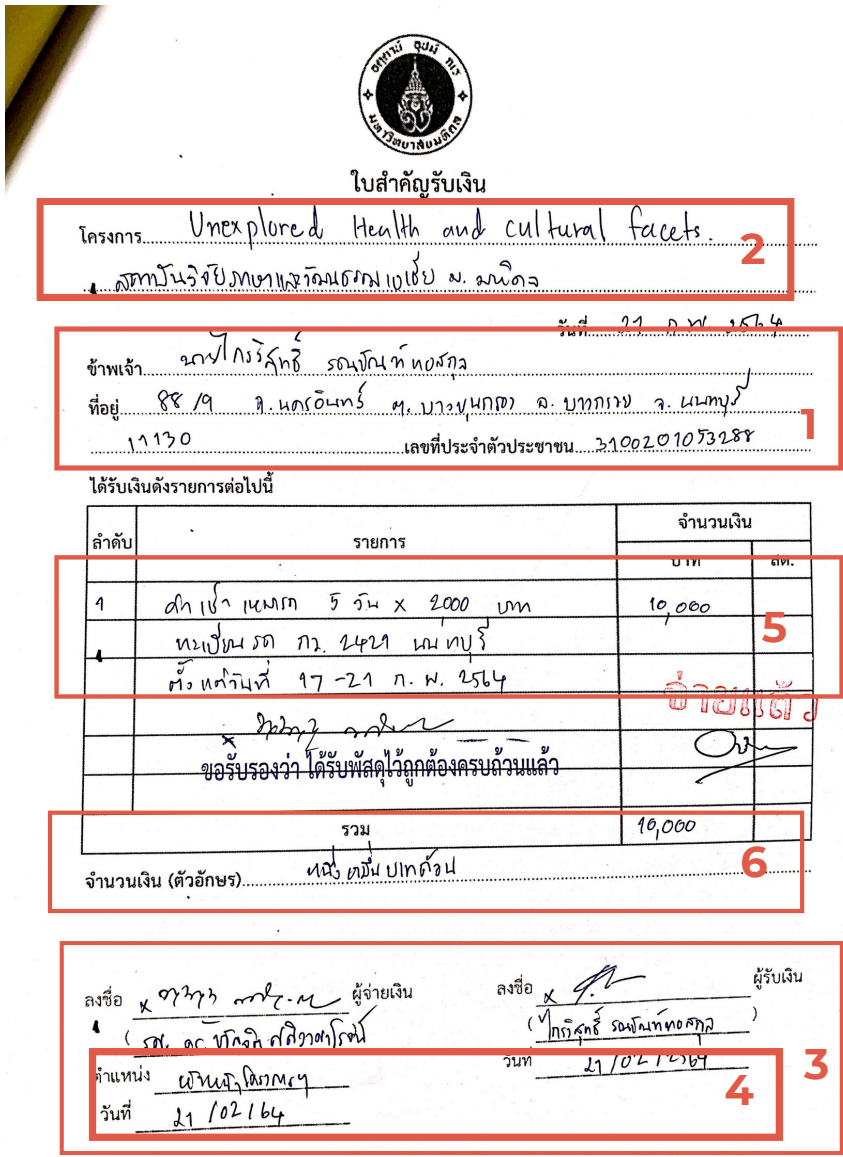 อตฺตานํ อุปมํ กเร
มหาวิทยาลัยมหิดล
ใบสำคัญรับเงิน
โครงการ Unexplored Health and cultural facets.
2
สถาบันวิจัยภาษาและวัฒนธรรมเอเชีย ม. มหิดล
วันที่ 21 ก.พ. 2564
ข้าพเจ้า นายไกรวิสุทธิ์
ที่อยู่ 88/9 ถ.นครอินทร์ ต. บางขุนกอง อ. บางกรวย จ. นนทบุรี
1
11130 เลขที่ประจำตัวประชาชน 3100201053288
ได้รับเงินดังรายการต่อไปนี้
ลำดับ รายการ จำนวนเงิน
บาท สต.
1 ค่าเช่าเหมารถ 5 วัน x 2000 บาท 10,000
5
ทะเบียนรถ 2421 นนทบุรี
ตั้งแต่วันที่ 17-21 ก.พ. 2564
จ่ายแล้ว
x
ขอรับรองว่า ได้รับพัสดุไว้ถูกต้องครบถ้วนแล้ว
รวม 10,000
6
จำนวนเงิน (ตัวอักษร) หนึ่งหมื่นบาทถ้วน
ลงชื่อ x ผู้จ่ายเงิน ลงชื่อ x ผู้รับเงิน
( รศ. ดร. ) ( ไกรวิสุทธิ์ )
3
ตำแหน่ง หัวหน้าโครงการฯ วันที่ 21/02/2564
4
วันที่ 21/02/64